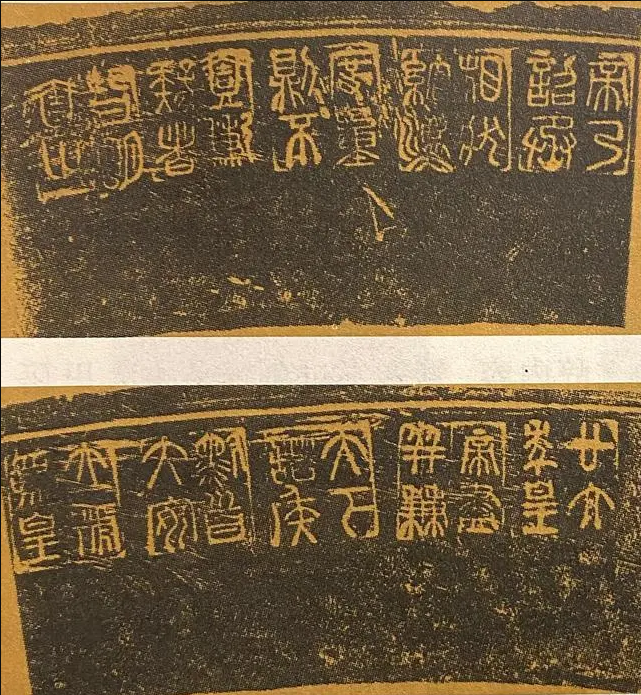 帝乃
詔丞
相狀
綰灋
度量
則不
壹歉
疑者
皆明
壹之
廿六
年皇
帝盡
并兼
天下
諸侯
黔首
大安
立號
為皇